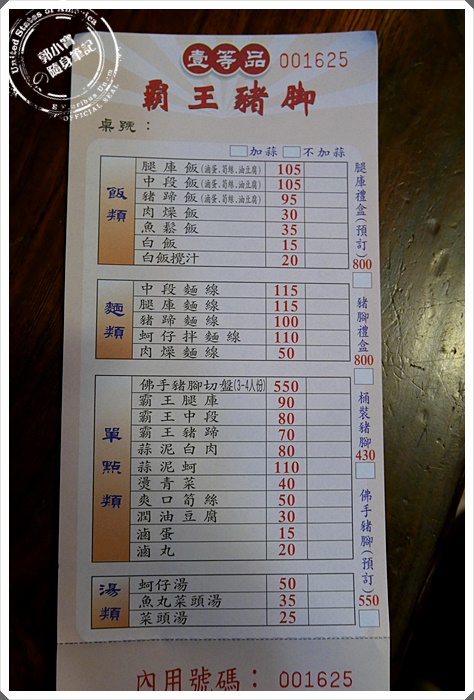 United States of America
郭小寶
の隨身筆記
E Pluribus Unum
OFFICIAL SEAL
壹等品 001625
霸王豬腳
桌號：
加蒜 不加蒜
飯類
腿庫飯(滷蛋、筍絲、油豆腐) 105
中段飯(滷蛋、筍絲、油豆腐) 105
豬蹄飯(滷蛋、筍絲、油豆腐) 95
肉燥飯 30
魚鬆飯 35
白飯 15
白飯攪汁 20
麵類
中段麵線 115
腿庫麵線 115
豬蹄麵線 100
蚵仔拌麵線 110
肉燥麵線 50
單點類
佛手豬腳切盤(3-4人份) 550
霸王腿庫 90
霸王中段 80
霸王豬蹄 70
蒜泥白肉 80
蒜泥蚵 110
燙青菜 40
爽口筍絲 50
潤油豆腐 30
滷蛋 15
滷丸 20
湯類
蚵仔湯 50
魚丸菜頭湯 35
菜頭湯 25
腿庫禮盒(預訂) 800
豬腳禮盒 800
桶裝豬腳 430
佛手豬腳(預訂) 550
內用號碼： 001625